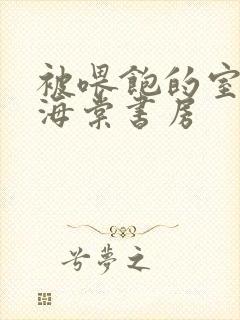 被喂饱的室
海棠书房
兮梦之